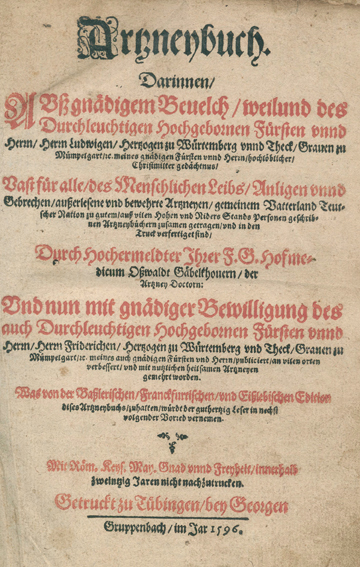 Artzneybuch.
Darinnen/
AVß gnädigem Beuelch / weilund des
Durchleuchtigen Hochgebornen Fürsten vnnd
Herrn/ Herrn Ludwigen/ Hertzogen zu Würtemberg vnnd Theck/ Grauen zu
Mümpelgart/ ꝛc. meines gnädigen Fürsten vnnd Herrn/ hochlöblicher/
Christmilter gedächtnus/
Vast für alle/ des Menschlichen Leibs/ Anligen vnnd
Gebrechen/ außerlesene vnd bewehrte Artzneyen/ gemeinem Vatterland Teut-
scher Nation zu gutem/ auß vilen Hohen vnd Niders Stands Personen geschrib-
nen Artzneybüchern zusamen getragen/ vnd in den
Truck verfertiget sind/
Durch Hochermeldter Ihrer F. G. Hofme-
dicum Oßwaldt Gäbelkhouern / der
Artzney Doctorn:
Vnd nun mit gnädiger Bewilligung des
auch Durchleuchtigen Hochgebornen Fürsten vnnd
Herrn/ Herrn Friderichen/ Hertzogen zu Würtemberg vnd Theck/ Grauen zu
Mümpelgart/ ꝛc. meines auch gnädigen Fürsten vnd Herrn/ publiciert/ an vilen orten
verbessert/ vnd mit nutzlichen heilsamen Artzneyen
gemehrt worden.
Was von der Baßlerischen/ Franckfurtischen/ vnd Eißlebischen Edition
dises Artzneybuchs/ zuhalten/ würdt der guthertzig Leser in nechst
volgender Vorred vernemen.
Mit Röm. Keys. May. Gnad vnnd Freyheit/ innerhalb
zweintzig Jaren nicht nachzutrucken.
Getruckt zu Tübingen/ bey Georgen
Gruppenbach/ im Jar 1596.